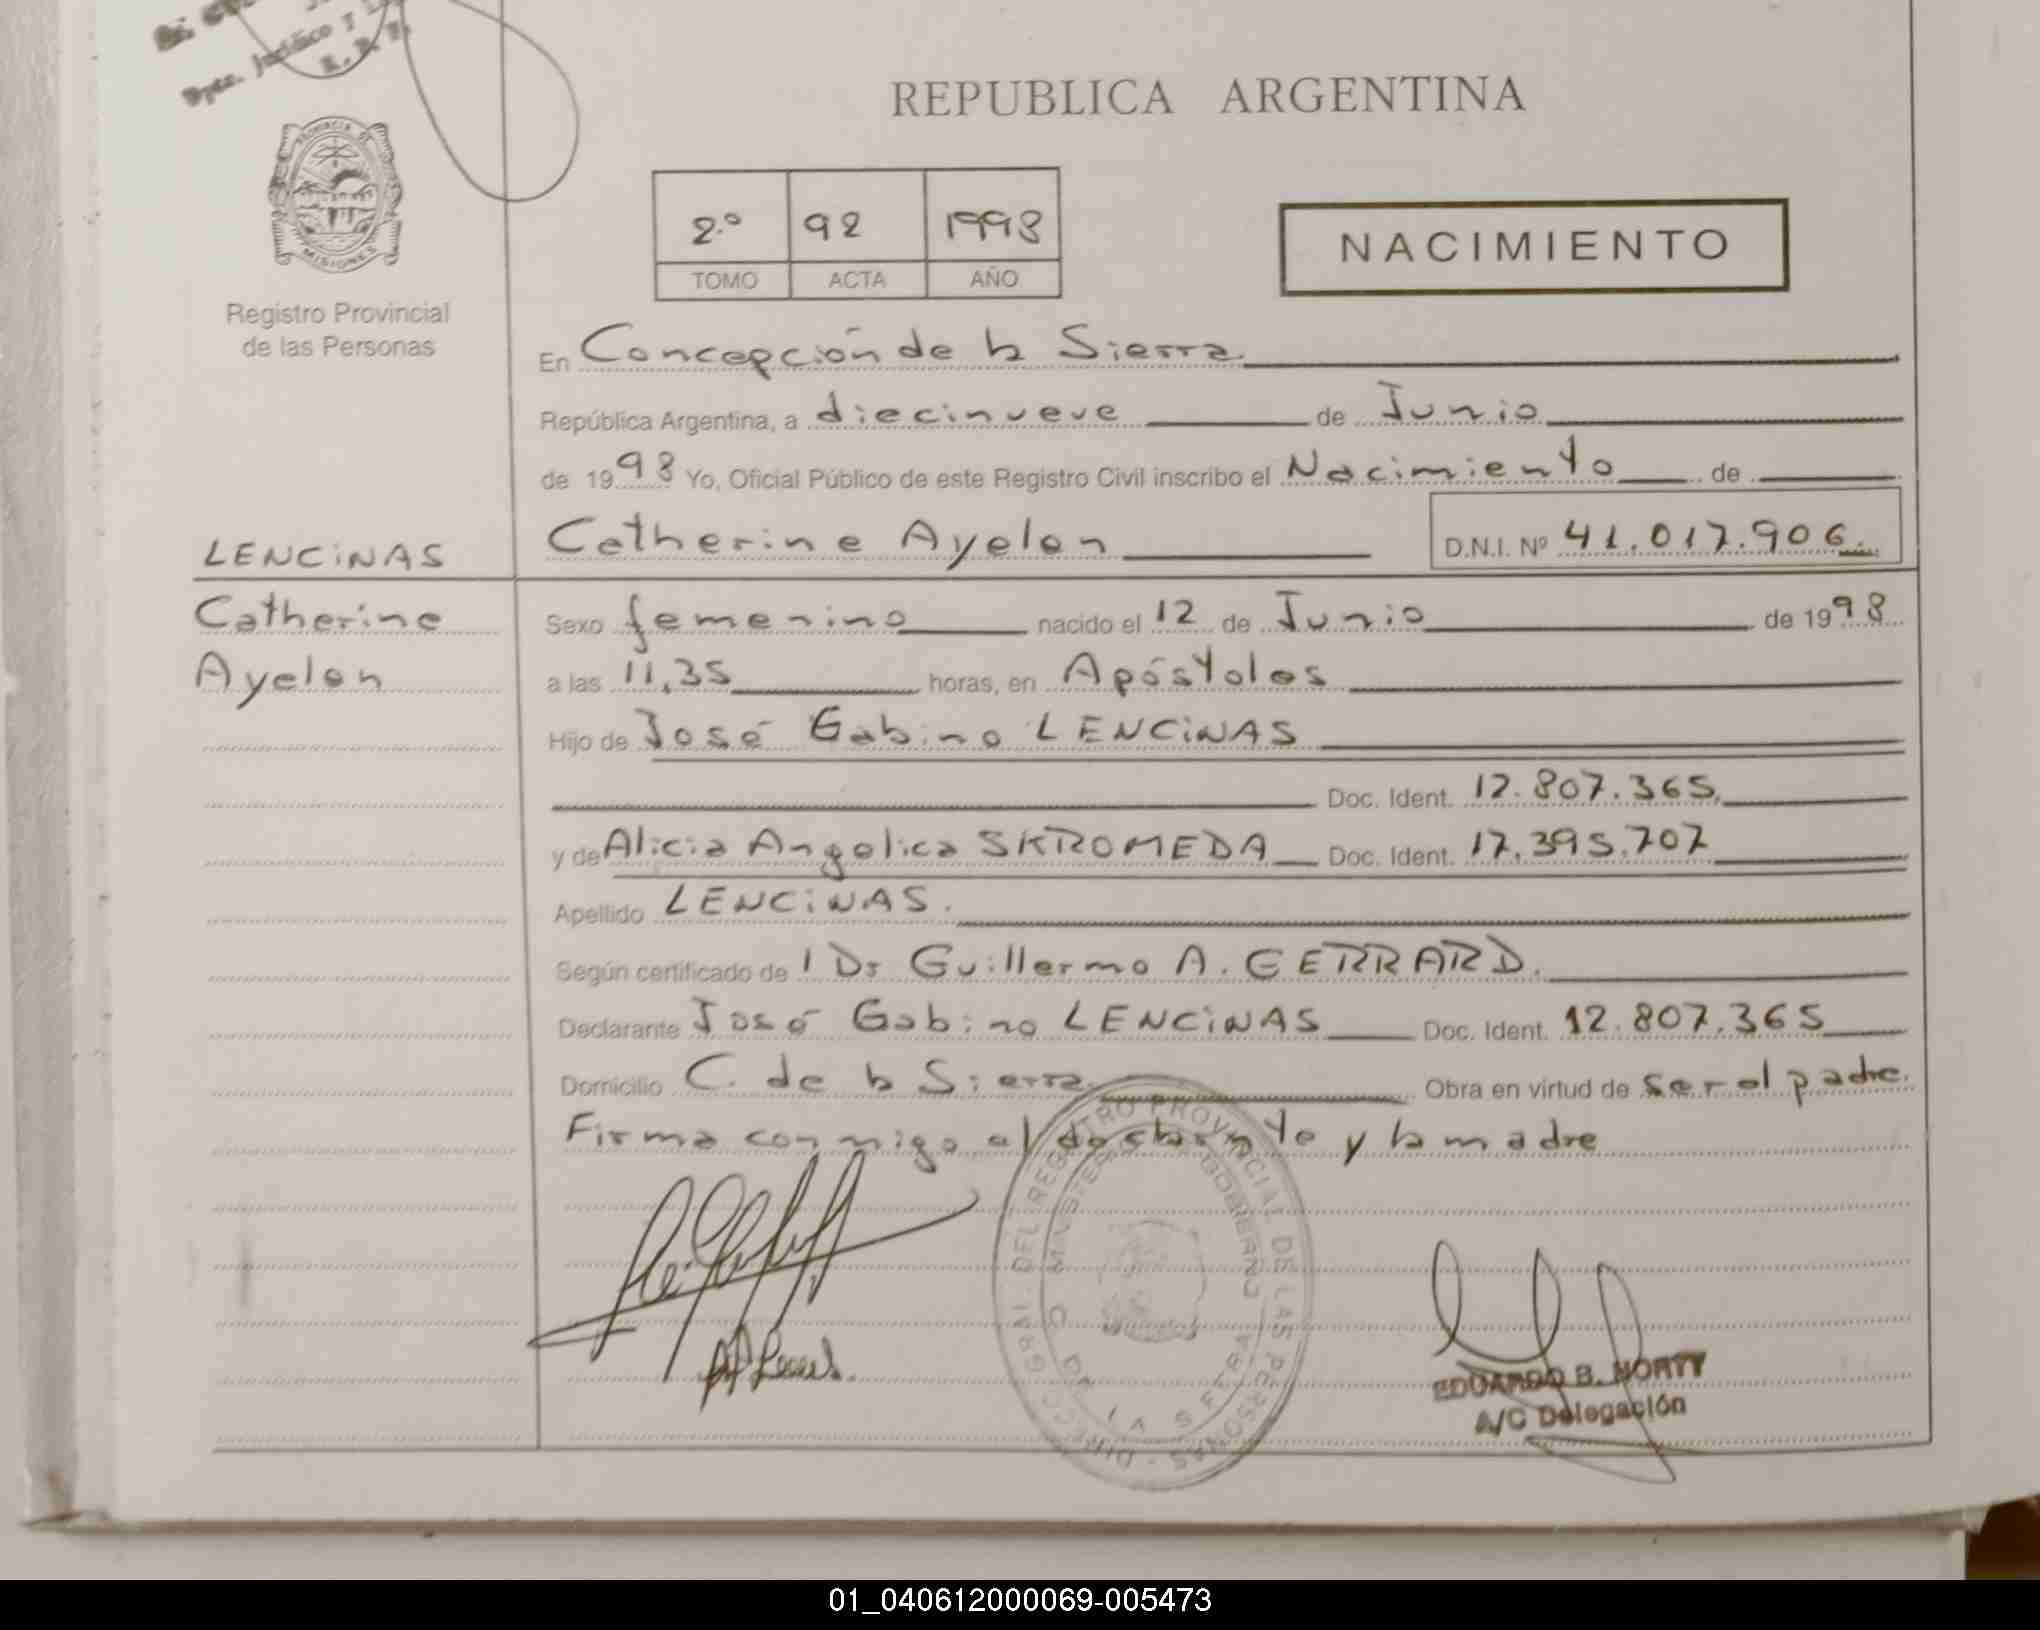 Dpto. Jurídico y
REPUBLICA ARGENTINA
PROVINCIA DE
MISIONES
Registro Provincial
de las Personas
2.º 92 1998
TOMO ACTA AÑO
NACIMIENTO
En Concepción de la Sierra
República Argentina, a diecinueve de Junio
de 1998 Yo, Oficial Público de este Registro Civil inscribo el Nacimiento de
LENCINAS Catherine Ayelen D.N.I. Nº 41.017.906.
Catherine Sexo femenino nacido el 12 de Junio de 1998
Ayelen a las 11,35 horas, en Apóstoles
Hijo de José Gabino LENCINAS
Doc. Ident. 12.807.365
y de Alicia Angelica SKROMEDA Doc. Ident. 17.395.707
Apellido LENCINAS.
Según certificado de l Dr Guillermo A. GERRARD.
Declarante José Gabino LENCINAS Doc. Ident. 12.807.365
Domicilio C. de la Sierra Obra en virtud de ser el padre.
Firma conmigo el declarante y la madre
DEL REGISTRO PROVINCIAL DE LAS PERSONAS
EDUARDO B. NORTY
A/C Delegación
01_040612000069-005473